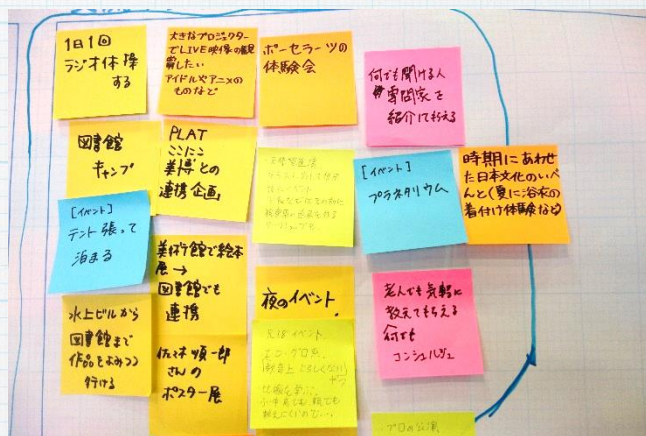 1日1回
ラジオ体操
する
大きなプロジェクター
でLIVE映像の鑑賞
したい
アイドルやアニメの
ものなど
ポーセラーツの
体験会
何でも聞ける人
専門家を
紹介してもらえる
図書館
キャンプ
PLAT
ここにこ
美博との
連携企画
[イベント]
プラネタリウム
時期にあわせ
た日本文化のいべ
んと(夏に浴衣の
着付け体験など)
[イベント]
テント張って
泊まる
美術館で絵本
展→
図書館でも
連携
夜のイベント
老人でも気軽に
教えてもらえる
何でも
コンシェルジュ
水上ビルから
図書館まで
作品をよみつつ
行ける
佐々木順一郎
さんの
ポスター展
プロの公演